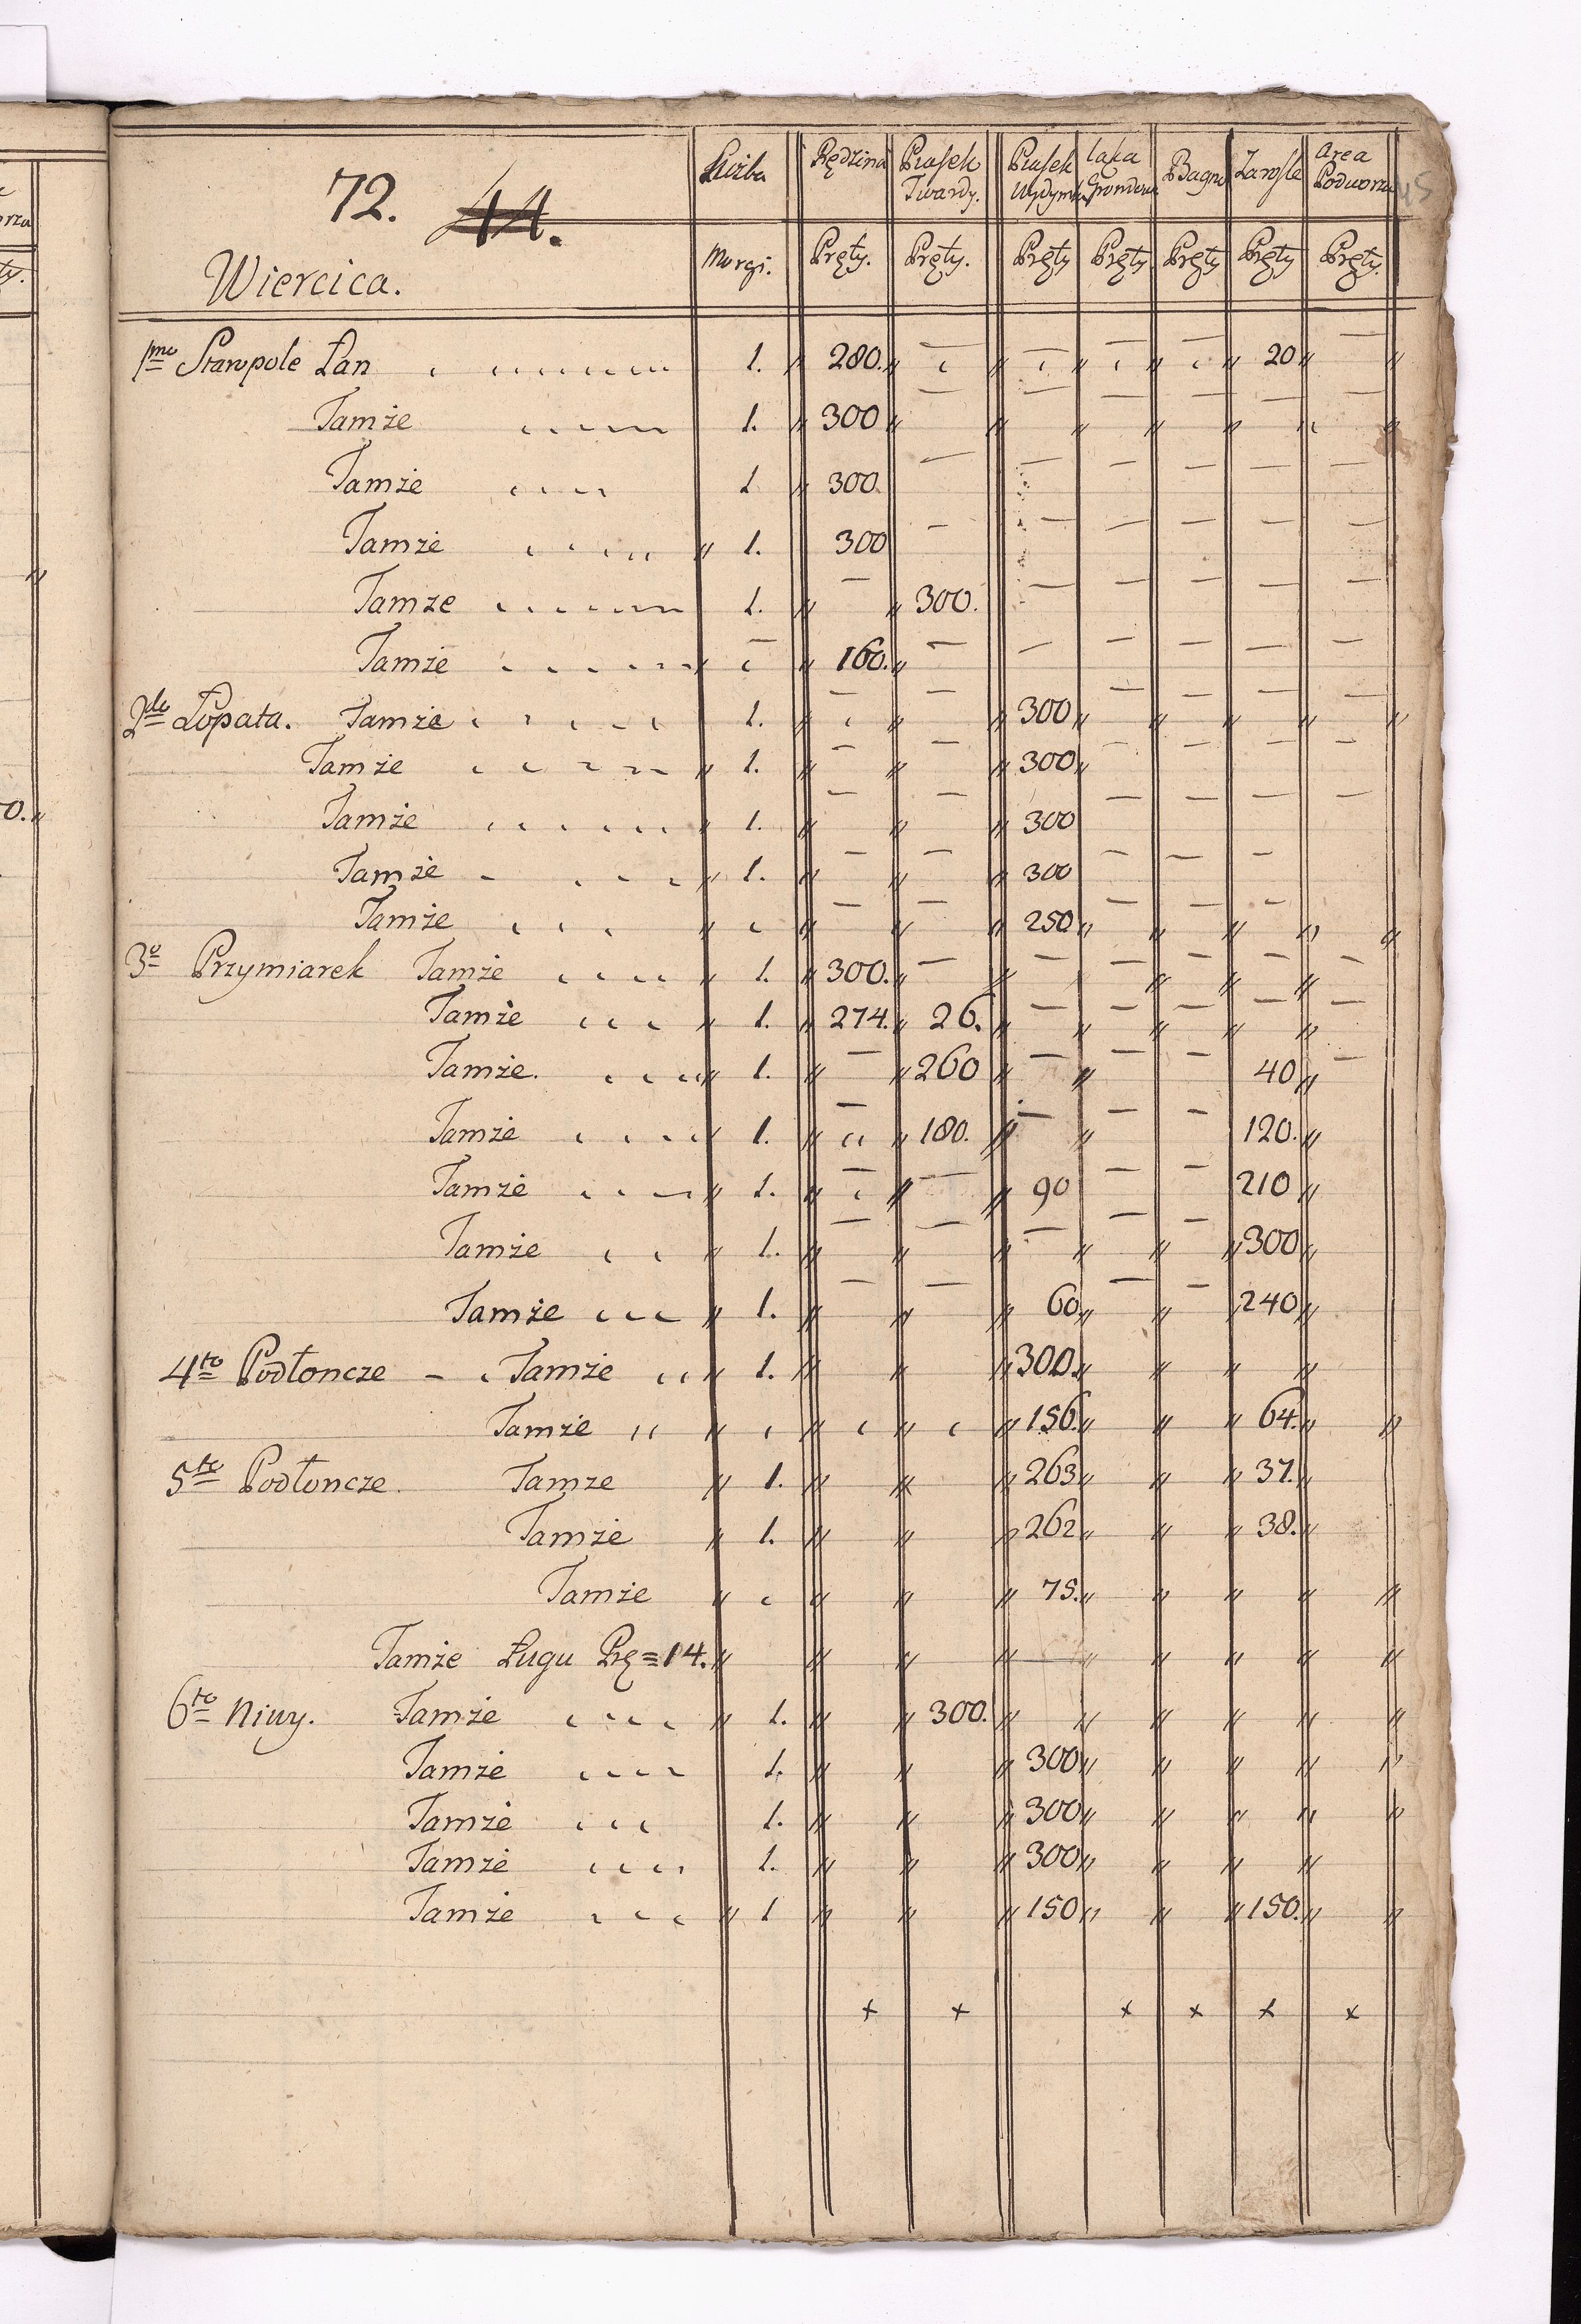 72. 44.
Wiercica.
Liczba Rędzina Piasek Twardy. Piasek Wydym Łąka Grondowa Bagno Zarosle Area Podworza 45
Morgi. Pręty. Pręty. Pręty Pręty Pręty Pręty Pręty.
1mo Staropole Łan 1. 280. 20
Tamże 1. 300
Tamże 1 300.
Tamże 1. 300
Tamze 1. 300.
Tamże 160.
2do Łopata. Tamże 1. 300
Tamże 1. 300
Tamże 1. 300
Tamże 1. 300
Tamże 250
3o Przymiarek Tamże 1. 300.
Tamże 1. 274. 26.
Tamże. 1. 260 40
Tamże 1. 180. 120.
Tamże 1. 90 210
Tamże 1. 300
Tamże 1. 60 240
4to Podłoncze – Tamże 1. 300.
Tamże 156. 64.
5to Podłoncze. Tamze 1. 263 37.
Tamże 1. 262 38.
Tamże 75.
Tamże Ługu Prę = 14.
6to Niwy. Tamże 1. 300.
Tamże 1. 300
Tamże 1. 300
Tamże 1. 300
Tamże 1 150 150.
x x x x x x